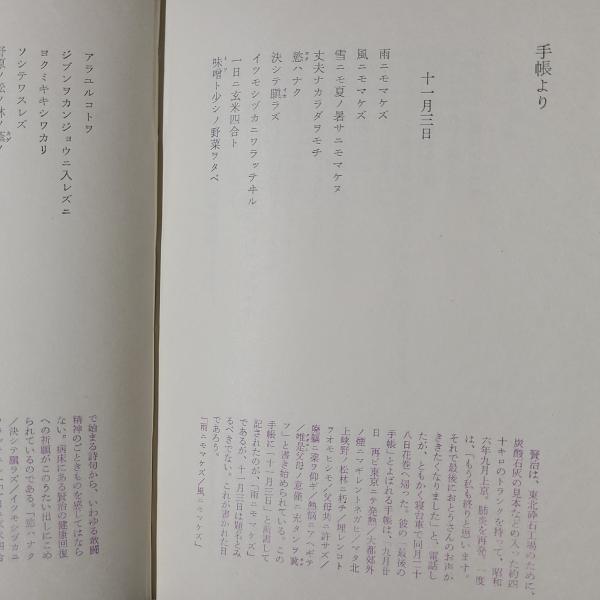 手帳より
十一月三日
雨ニモマケズ
風ニモマケズ
雪ニモ夏ノ暑サニモマケヌ
丈夫ナカラダヲモチ
慾ハナク
決シテ瞋ラズ
イツモシヅカニワラッテヰル
一日ニ玄米四合ト
味噌ト少シノ野菜ヲタベ
アラユルコトヲ
ジブンヲカンジョウニ入レズニ
ヨクミキキシワカリ
ソシテワスレズ
野原ノ松ノ林ノ蔭ノ
賢治は、東北砕石工場のために、
炭酸石灰の見本などの入った約四
十キロのトランクを持って、昭和
六年九月上京、肺炎を再発、一度
は、「もう私も終りと思います。
それで最後におとうさんのお声が
ききたくなりました」と、電話し
たが、ともかく寝台車で同月二十
八日花巻へ帰った。彼の「最後の
手帳」とよばれる手帳は、九月廿
日　再ビ東京ニテ発熱／大都郊外
ノ煙ニマギレントネガヒ／マタ北
上峡野ノ松林ニ朽チ／埋レンコト
ヲオモヒシモ／父母共ニ許サズ／
廃軀ニ薬ヲ仰ギ／熱悩ニアヘギテ
／唯是父母ノ意僅ニ充タンヲ冀
ツ」と書き始められている。この
手帳に「十一月三日」と前書して
記されたのが、「雨ニモマケズ」
であるが、十一月三日は題とよみ
るべきでない。これが書かれた日
であろう。
「雨ニモマケズ／風ニモマケズ」
で始まる詩句から、いわゆる敢闘
精神のごときものを感じてはなら
ない。病床にある賢治の健康回復
への祈願がこのうたい出しにこめ
られているのである。「慾ハナク
／決シテ瞋ラズ／イツモシヅカニ